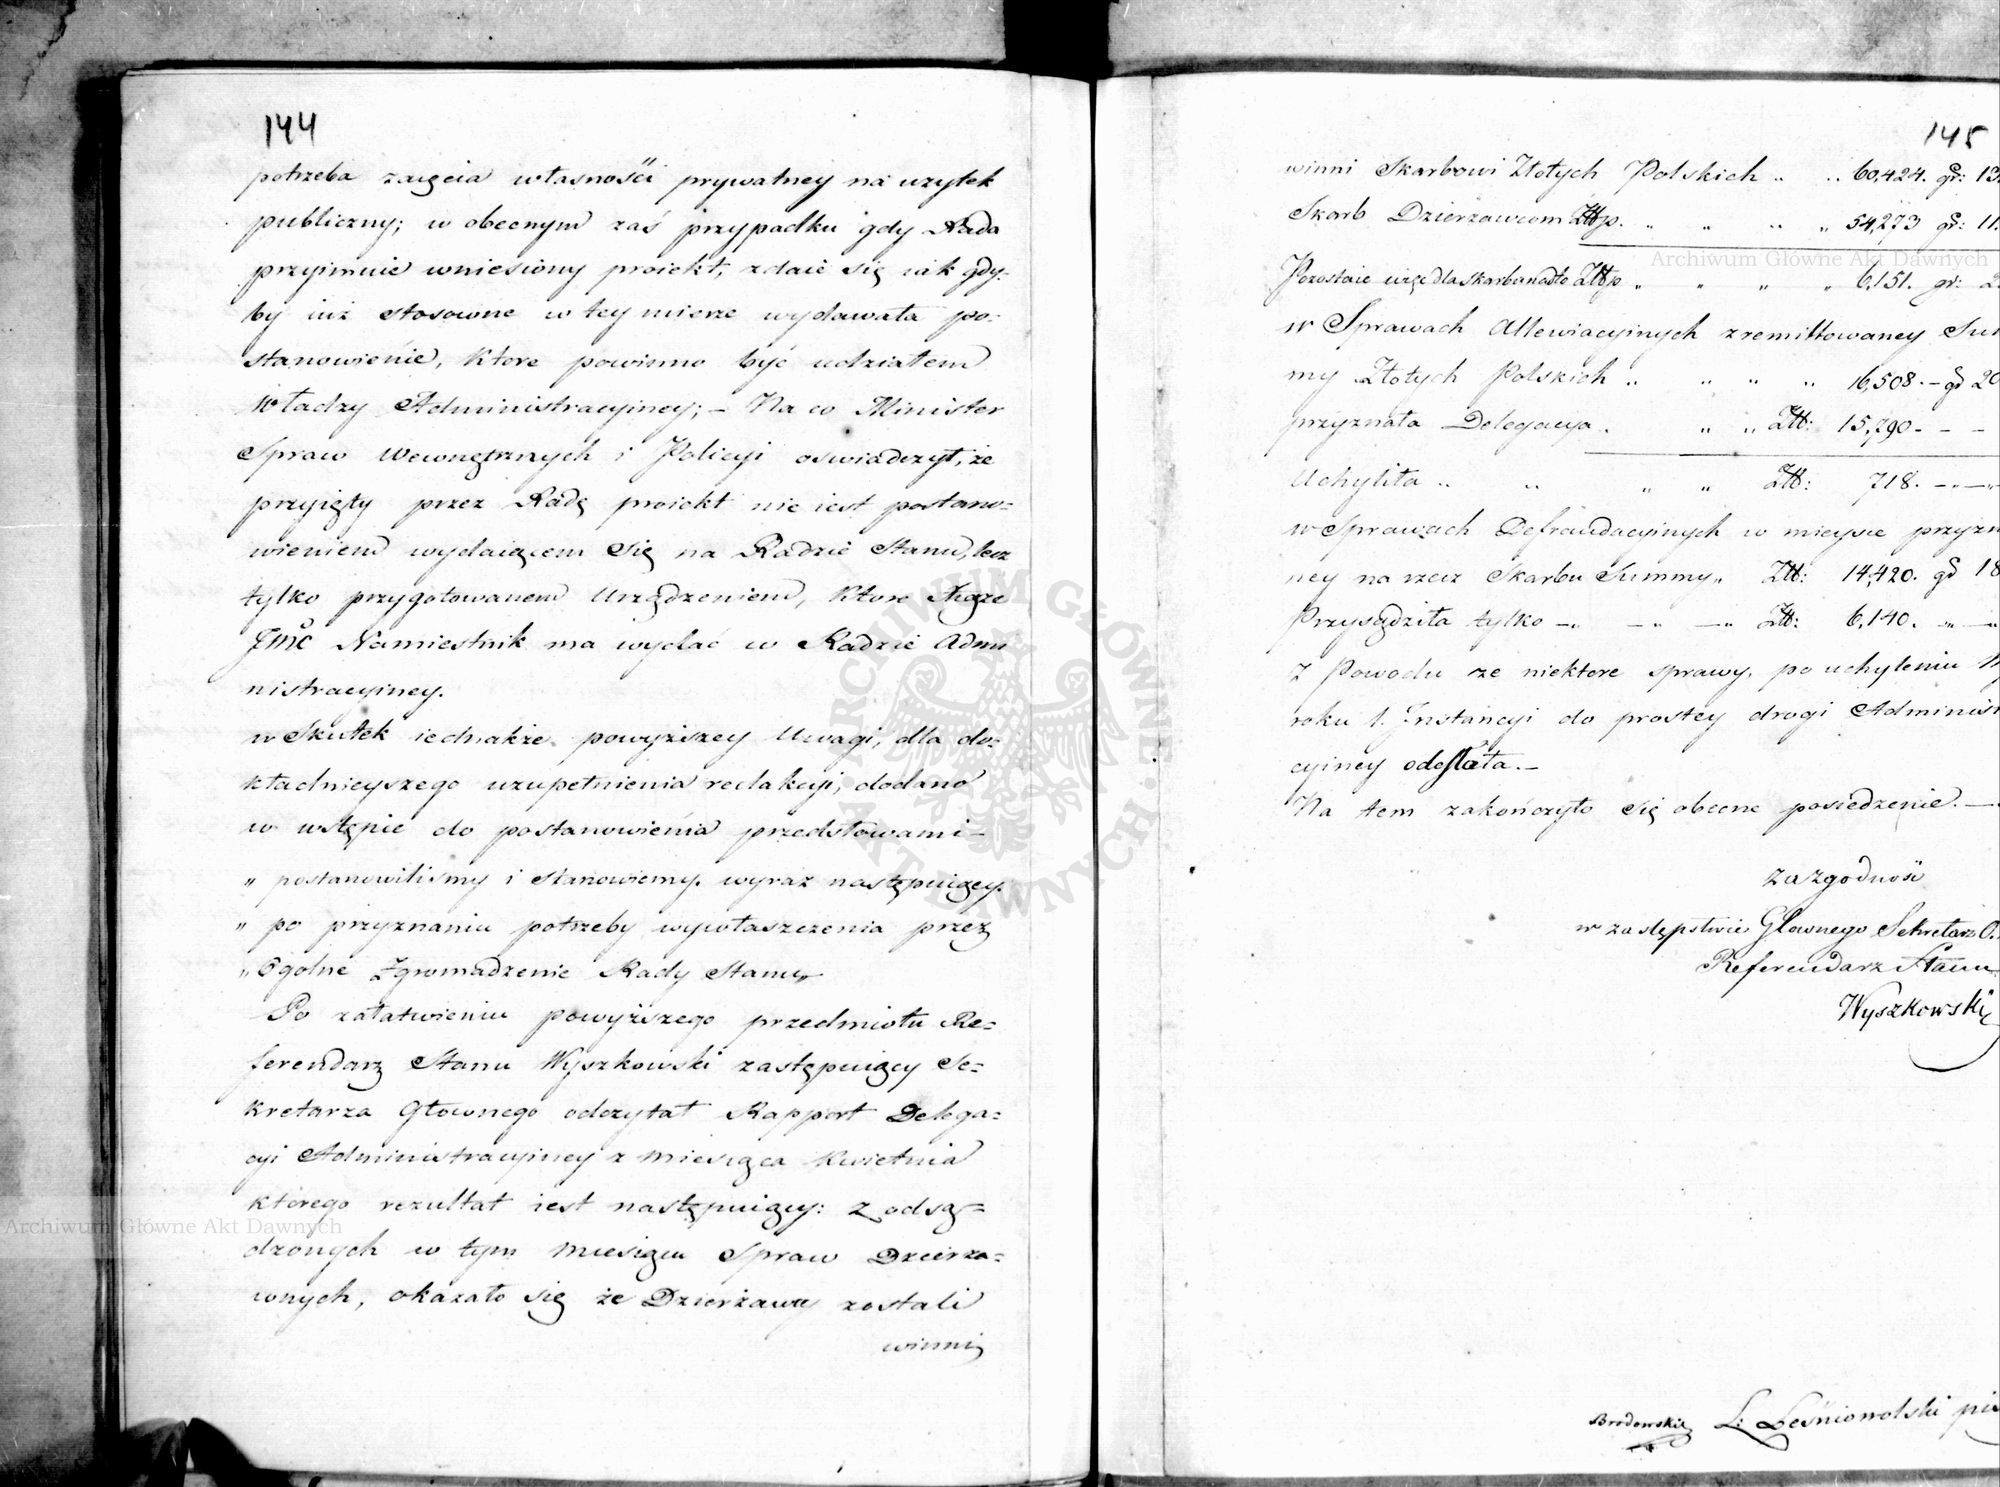 144
potrzeba zaięcia własności prywatney na użytek
publiczny; w obecnym zaś przypadku gdy Rada
przyimuie wniesiony proiekt, zdaie się iak gdy-
by iuż stosowne w tey mierze wydawała po-
stanowienie, które powinno być udziałem
Władzy Administracyiney; – Na co Minister
Spraw Wewnętrznych i Policyi oswiadczył, że
przyięty przez Radę proiekt nie iest postano-
wieniem wydaiącem się na Radzie Stanu, lecz
tylko przygotowanem Urządzeniem, które Xiąże
JMć Namiestnik ma wydać w Radzie Admi
nistracyiney.
w Skutek iednakże powyższey Uwagi, dla do-
kładnieyszego uzupełnienia redakcyi, dodano
w wstępie do postanowienia przed słowami –
„ postanowiliśmy i stanowiemy. wyraz następuiący.
„ po przyznaniu potrzeby wywłaszczenia przez
„ Ogólne Zgromadzenie Rady Stanu„
Po załatwieniu powyższego przedmiotu Re-
ferendarz Stanu Wyszkowski zastępuiący Se-
kretarza Głownego odczytał Rapport Delega-
cyi Administracyiney z miesiąca Kwietnia
którego rezultat iest następuiący: z odsą-
dzonych w tym miesiącu Spraw Dzierza-
wnych, okazało się że Dzierżawcy zostali
winni
145
winni Skarbowi Złotych Polskich „ „ 60,424. gr: 13.
Skarb Dzierzawcom Złtp. „ „ „ „ 54,273 gr: 11.
Pozostaie więc dla Skarbu nadto Złtp „ „ „ „ 6,151. gr: 2.
w Sprawach Allewiacyinych z remittowaney Sum
my Złotych Polskich „ „ „ „ 16,508. – gr 20
przyznała Delegacya „ „ „ Zł: 15,790 – –
Uchyliła „ „ „ „ Zł: 718. – „ – „
w Sprawach Defraudacyinych w mieysce przyzn
ney na rzecz Skarbu Summy „ Zł: 14,420. gr 18
Przysądziła tylko – „ – „ – „ Zł: 6,140. „ – „
z Powodu ze niektore sprawy, po uchyleniu Wy
roku 1. Instancyi do prostey drogi Administr
cyiney odesłała. –
Na tem zakończyło się obecne posiedzenie. –
Za zgodność
w zastępstwie Głownego Sekretarza
Referendarz Stanu
Wyszkowski
Brodowski L: Leśniowolski pis
Archiwum Główne Akt Dawnych
Archiwum Główne Akt Dawnych
ARCHIWUM GŁÓWNE AKT DAWNYCH